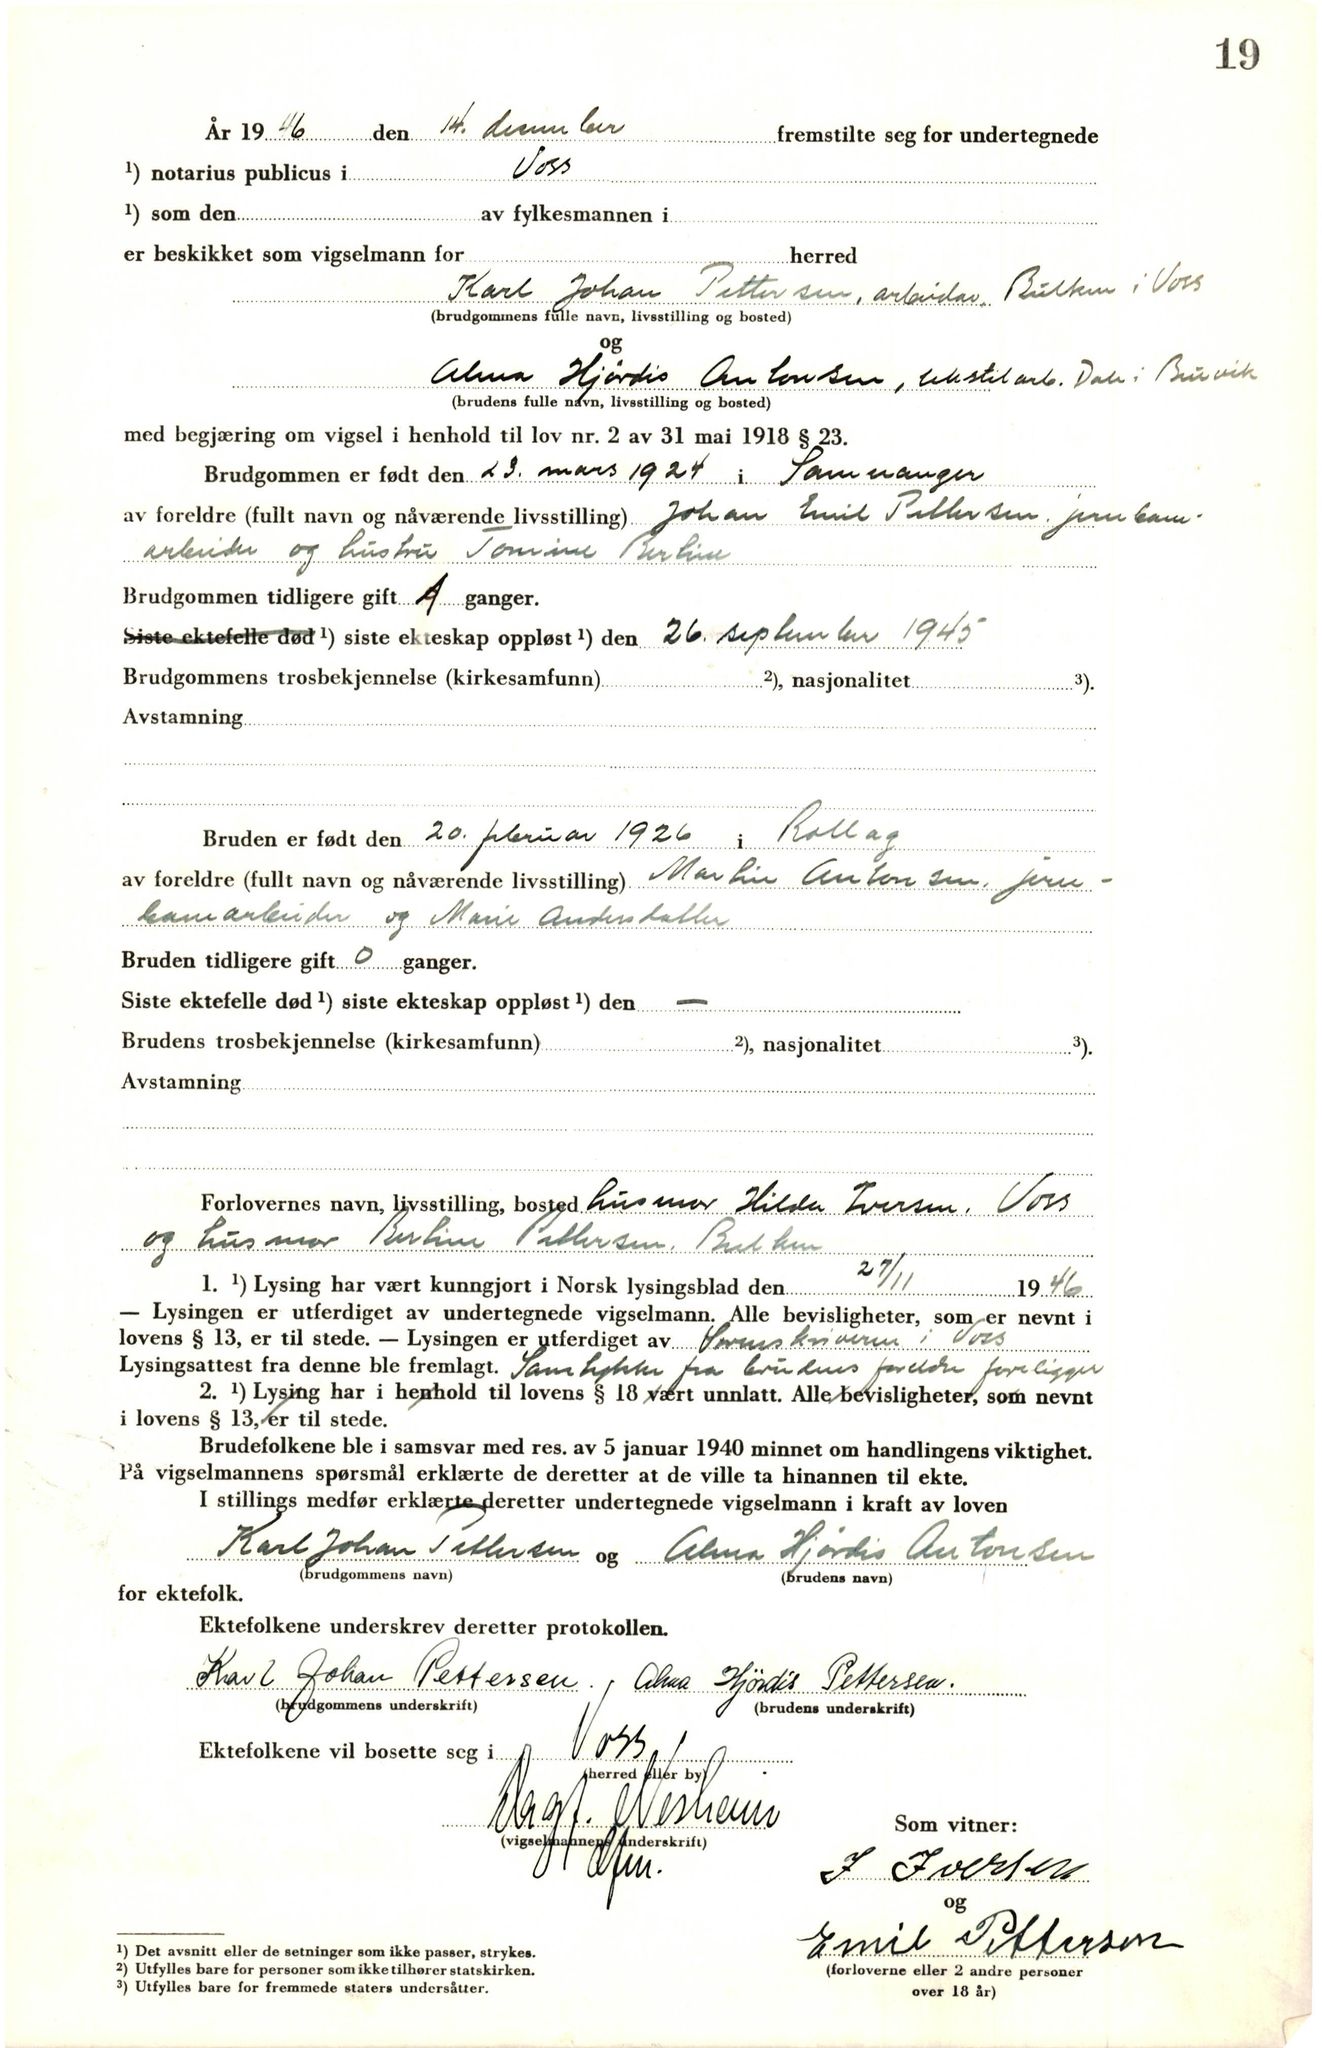 19
År 19 46 den 14. desember fremstilte seg for undertegnede
¹) notarius publicus i Voss
¹) som den av fylkesmannen i
er beskikket som vigselmann for herred
Karl Johan Pettersen, arbeider, Bulken i Voss
(brudgommens fulle navn, livsstilling og bosted)
og
Alma Hjördis Antonsen, tekstilarb. Dale i Bruvik
(brudens fulle navn, livsstilling og bosted)
med begjæring om vigsel i henhold til lov nr. 2 av 31 mai 1918 § 23.
Brudgommen er født den 23. mars 1924 i Samnanger
av foreldre (fullt navn og nåværende livsstilling) Johan Emil Pettersen, jernbane-
arbeider og hustru Tomine Bertine
Brudgommen tidligere gift 1 ganger.
Siste ektefelle død ¹) siste ekteskap oppløst ¹) den 26. september 1945
Brudgommens trosbekjennelse (kirkesamfunn) ²), nasjonalitet ³).
Avstamning
Bruden er født den 20. februar 1926 i Rollag
av foreldre (fullt navn og nåværende livsstilling) Martin Antonsen, jern-
banearbeider og Marie Andersdatter
Bruden tidligere gift 0 ganger.
Siste ektefelle død ¹) siste ekteskap oppløst ¹) den —
Brudens trosbekjennelse (kirkesamfunn) ²), nasjonalitet ³).
Avstamning
Forlovernes navn, livsstilling, bosted husmor Hilda Iversen, Voss
og husmor Bertine Pettersen, Bulken
1. ¹) Lysing har vært kunngjort i Norsk lysingsblad den 27/11 19 46
— Lysingen er utferdiget av undertegnede vigselmann. Alle bevisligheter, som er nevnt i
lovens § 13, er til stede. — Lysingen er utferdiget av Sorenskriveren i Voss
Lysingsattest fra denne ble fremlagt. Samtykke fra brudens foreldre foreligger
2. ¹) Lysing har i henhold til lovens § 18 vært unnlatt. Alle bevisligheter, som nevnt
i lovens § 13, er til stede.
Brudefolkene ble i samsvar med res. av 5 januar 1940 minnet om handlingens viktighet.
På vigselmannens spørsmål erklærte de deretter at de ville ta hinannen til ekte.
I stillings medfør erklærte deretter undertegnede vigselmann i kraft av loven
Karl Johan Pettersen og Alma Hjördis Antonsen
(brudgommens navn) (brudens navn)
for ektefolk.
Ektefolkene underskrev deretter protokollen.
Karl Johan Pettersen. Alma Hjördis Pettersen.
(brudgommens underskrift) (brudens underskrift)
Ektefolkene vil bosette seg i Voss
(herred eller by)
Nesheim
(vigselmannens underskrift)
Som vitner:
I Iversen
og
Emil Pettersen
(forloverne eller 2 andre personer
over 18 år)
¹) Det avsnitt eller de setninger som ikke passer, strykes.
²) Utfylles bare for personer som ikke tilhører statskirken.
³) Utfylles bare for fremmede staters undersåtter.